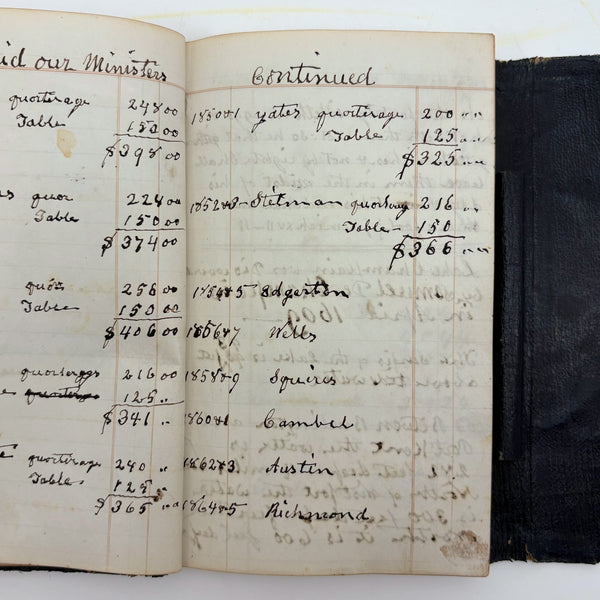 id our Ministers
quortirage 248 00
Table 150 00
$398 00
quor 224 00
Table 150 00
$374 00
quor 256 00
Table 150 00
$406 00
216 00
125 "
$341 "
quortirage 240 "
Table 125 "
$365 " "
Continued
1850&1 Yates quortirage 200 " "
Table 125 " "
$325 " "
1852&3 Stetman 216 " "
Table 150 "
$366 " "
1854&5 Edgerton
1856&7 Wells
1858&9 Squires
1860&1 Cambel
1862&3 Austin
1864&5 Richmond